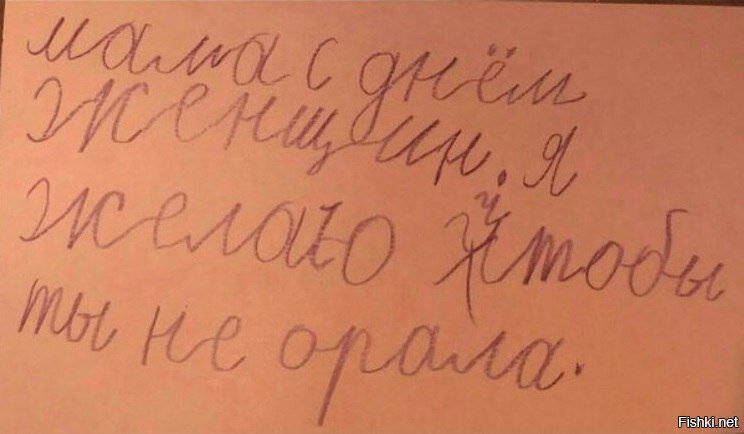 мама с днём
женщин. я
желаю чтобы
ты не орала.
Fishki.net